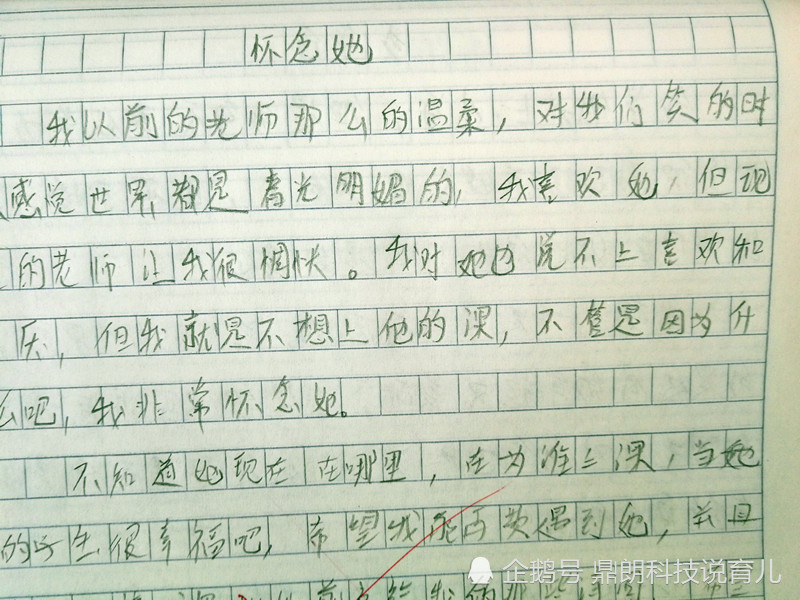 怀念她
我以前的老师那么的温柔，对我们笑的时
感觉世界都是春光明媚的，我喜欢她，但现
的老师让我很惆怅。我对她也说不上喜欢和
厌，但我就是不想上他的课，不管是因为什
么吧，我非常怀念她。
不知道她现在在哪里，在为谁上课，当她
的学生很幸福吧，希望我能再次遇到她，并且
给我的那些
企鹅号 鼎朗科技说育儿